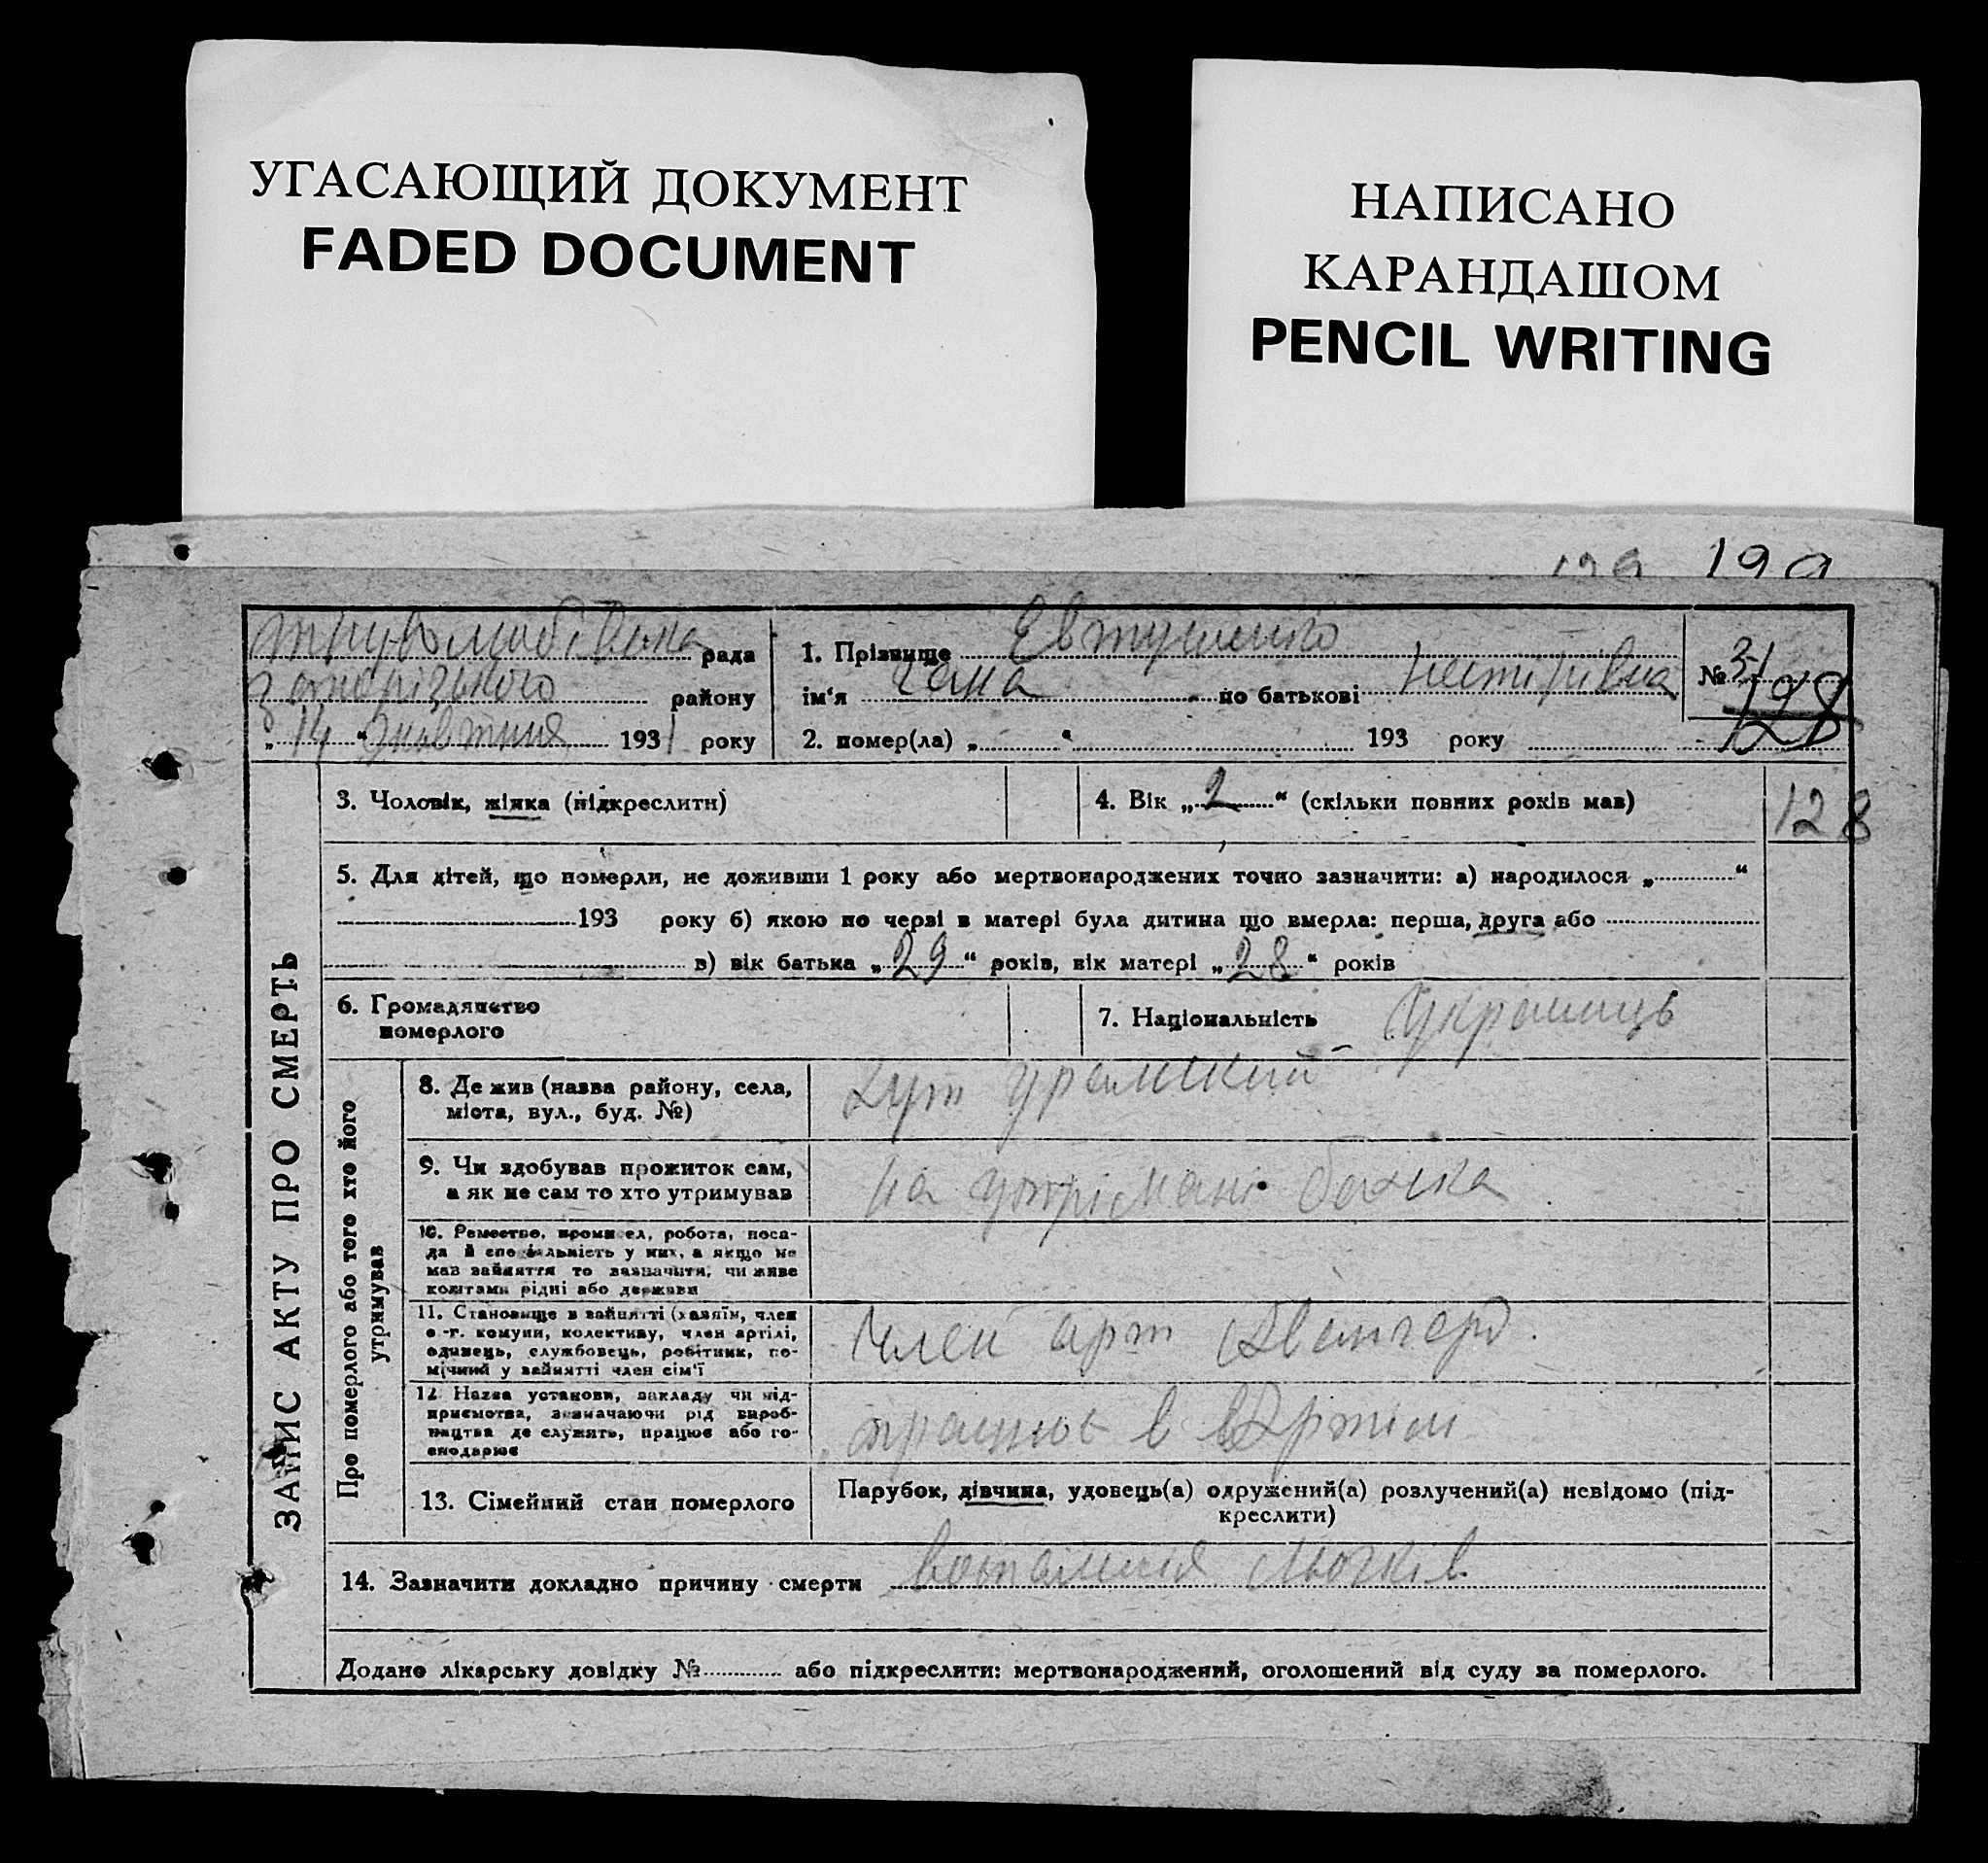 УГАСАЮЩИЙ ДОКУМЕНТ
FADED DOCUMENT
НАПИСАНО
КАРАНДАШОМ
PENCIL WRITING
199
рада
району
„ 14 “ жовтня 1931 року
1. Прізвище Евтушенко
ім‘я по батькові
2. помер(ла) „ “ 193 року
№ 31
128
3. Чоловік, жінка (підкреслити)
4. Вік „ 2 “ (скільки повних років мав)
128
5. Для дітей, що померли, не доживши 1 року або мертвонароджених точно зазначити: а) народилося „ “
193 року б) якою по черві в матері була дитина що вмерла: перша, друга або
в) вік батька „ 29 “ років, вік матері „ 28 “ років
6. Громадянство
померлого
7. Національність Українць
ЗАПИС АКТУ ПРО СМЕРТЬ
Про померлого або того хто його
утримував
8. Де жив (назва району, села,
міста, вул., буд. №)
хут
9. Чи здобував прожиток сам,
а як не сам то хто утримував
на утрімані батька
10. Ремество, промисел, робота, поса-
да й спеціальність у них, а якщо не
мав зайняття то зазначити, чи живе
коштами рідні або держави
11. Становище в зайнятті (хазяїн, член
с.-г. комуни, колективу, член артілі,
одинець, службовець, робітник, по-
мічний у зайнятті член сім‘ї
член арт Авангард.
12 Назва установи, закладу чи під-
приємства, зазначаючи рід вироб-
ництва де служить, працює або го-
сподарює
працює в Артілі
13. Сімейний стан померлого
Парубок, дівчина, удовець(а) одружений(а) розлучений(а) невідомо (під-
креслити)
14. Зазначити докладно причину смерти воспаления
Додано лікарську довідку № або підкреслити: мертвонароджений, оголошений від суду за померлого.